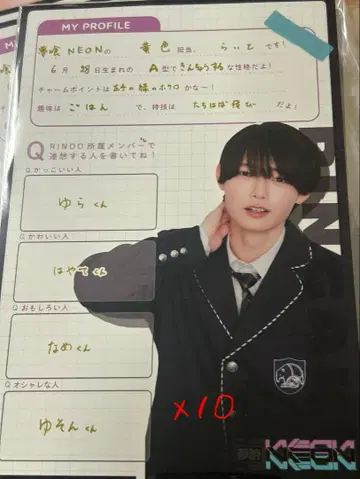 MY PROFILE
夢喰NEONの 黄色 担当、 らいと です!
6月 28日生まれの A型で きんちょうする な性格だよ!
チャームポイントは 左手の 横のホクロ かな〜!
趣味は ごはん で、特技は たちはば 跳び だよ!
Q RINDO所属メンバーで
連想する人を書いてね!
Q かっこいい人
ゆら くん
Q かわいい人
はやてくん
Q おもしろい人
なめくん
Q オシャレな人
ゆそん くん
×10
NEON